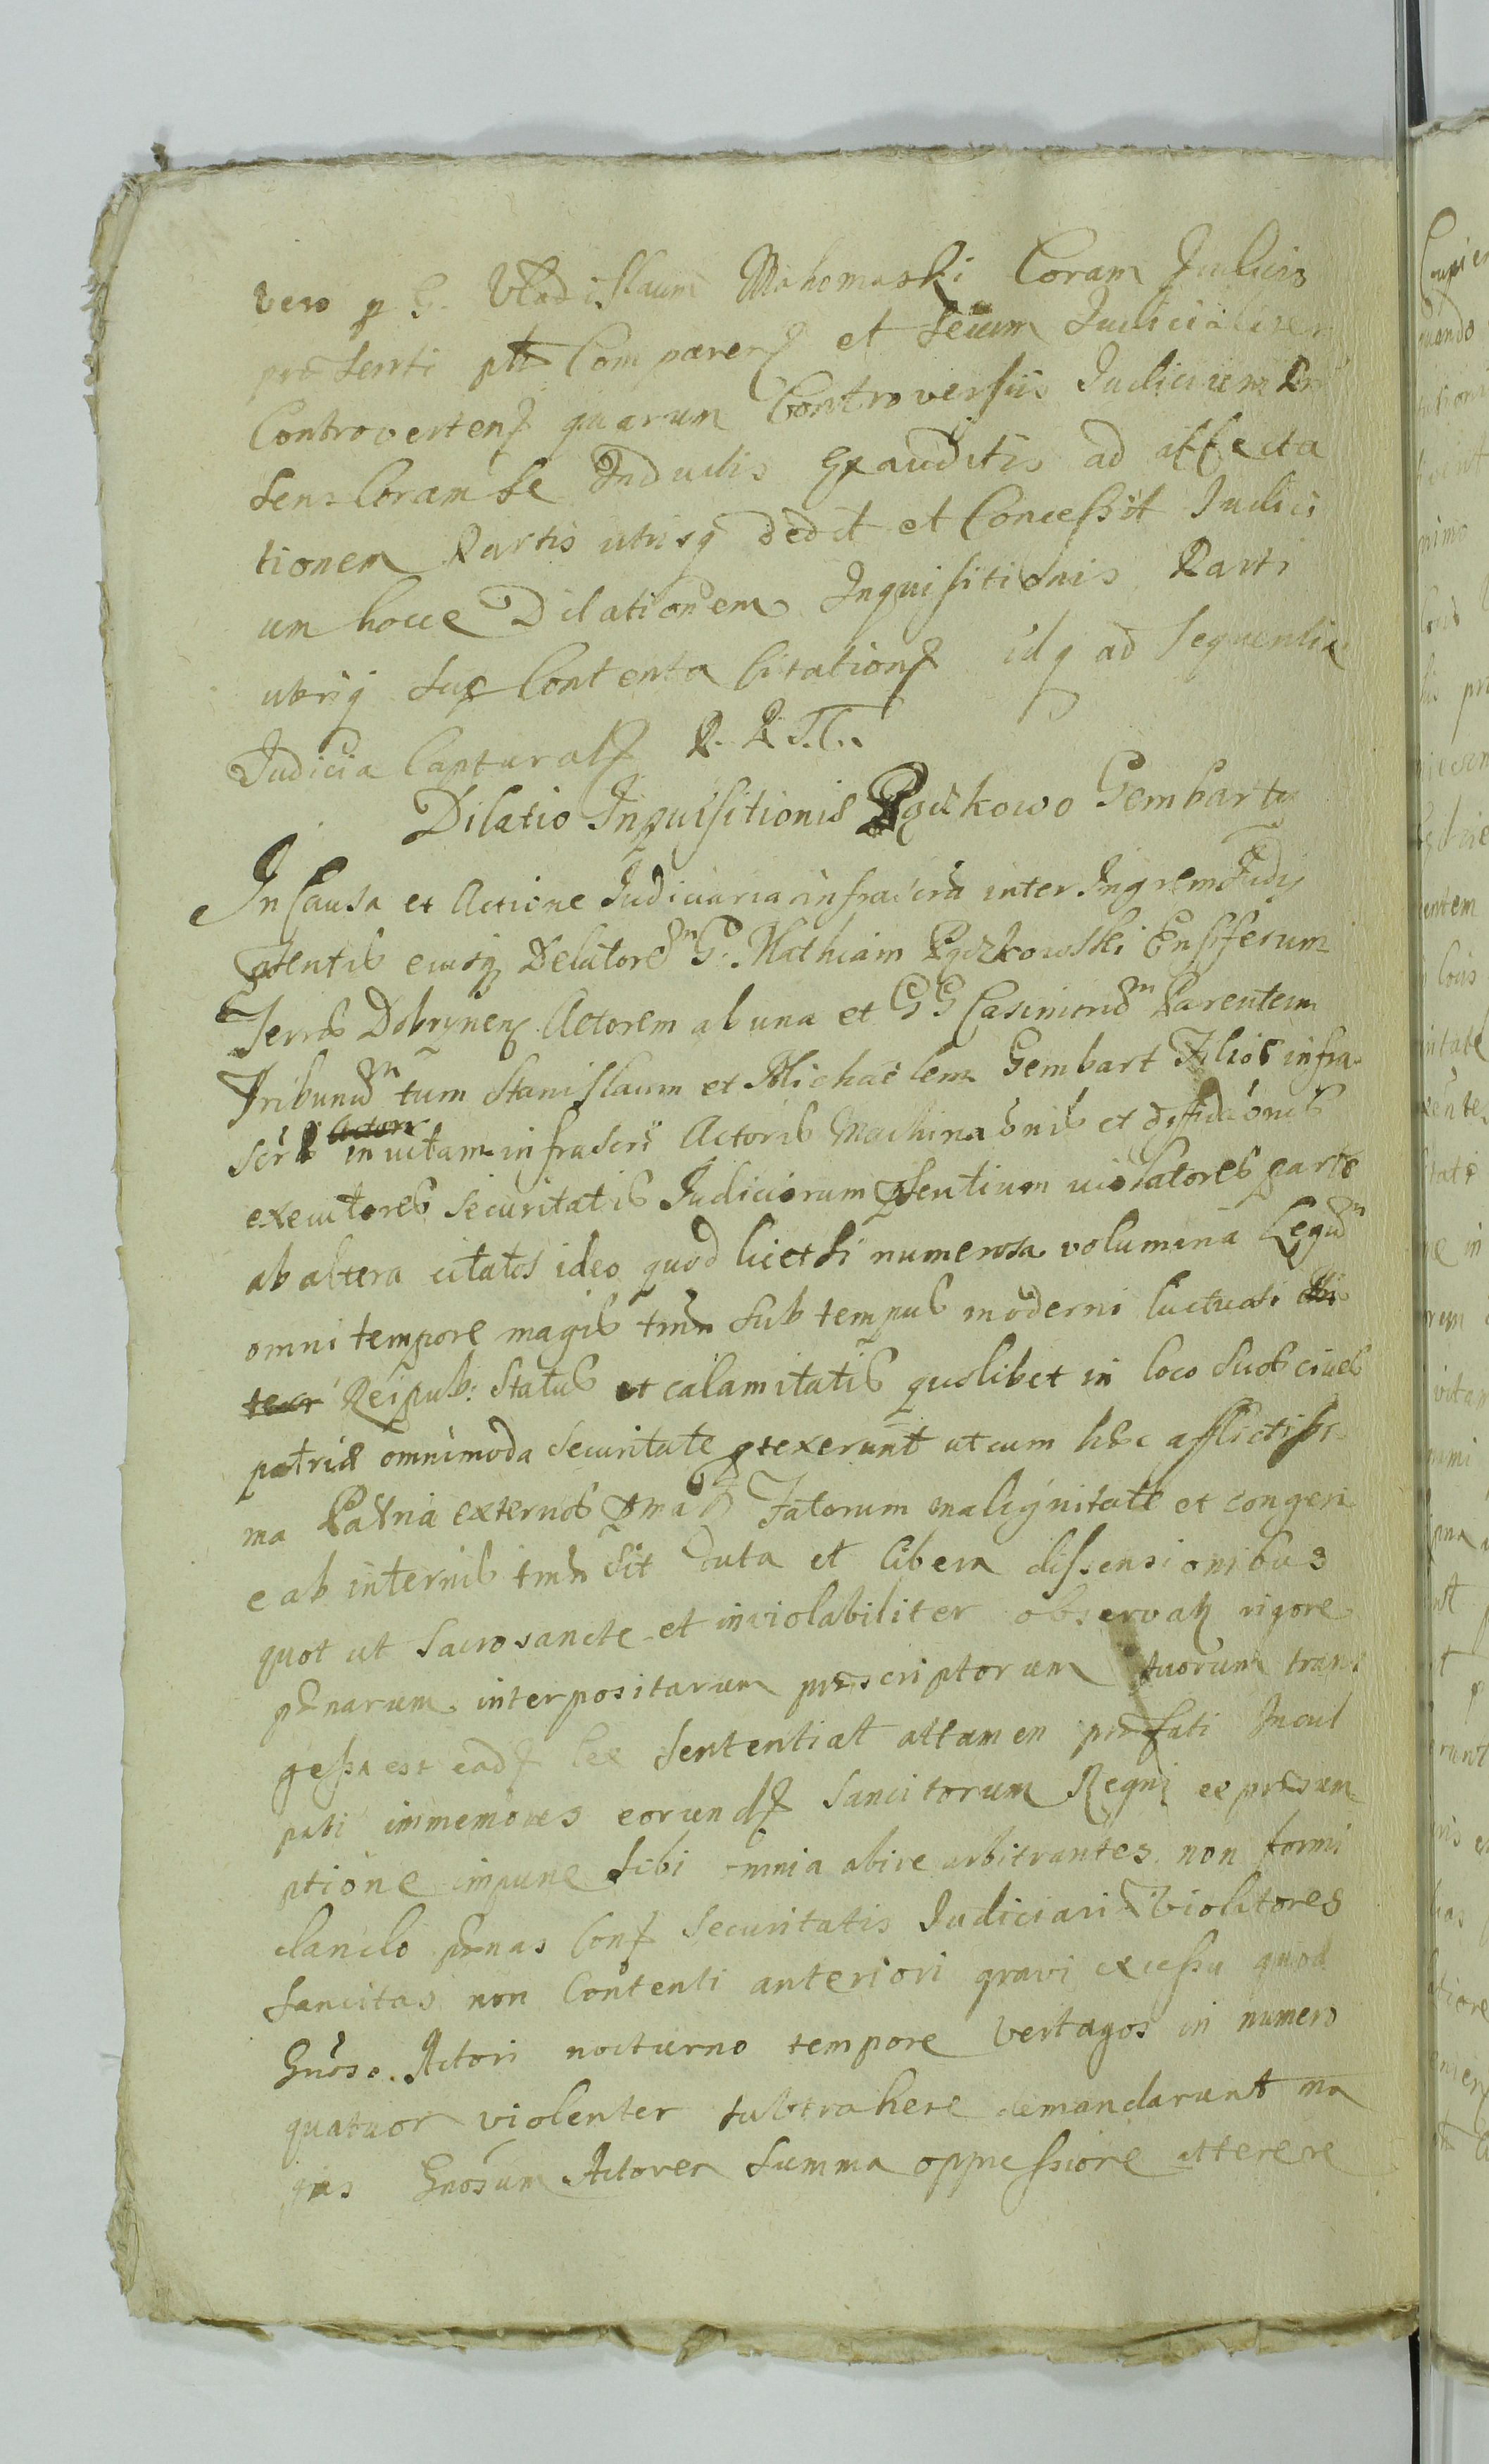 vero p G. Vladislaum Mahomaski Coram Judicio
præsenti ptt Comparenʒ et secum Judicialiter
Controvertenʒ quarum Controversiis Judicium Præ
sens Coram se Inductis Exauditis ad affecta
tionem Partis utriusq dedit et Concessit Judici
um hocce Dilationem Inquisitionis Parti
utriq sup Contenta Citationʒ idq ad sequentia
Judicia Capturalʒ P. P. T.
Dilatio Inquisitionis Pączkowo Gembarty
In Causa et Actione Judiciaria infrascrã inter
sentis eiusq Delatorem G. Mathiam Pączkowski Ensiferum
Terræ Dobrynenʒ Actorem ab una et G G Casimirum Parentem
Tribunũ tum Stanislaum et Michaëlem Gembart Filios infra
scr Actore in vitam infrascri Actoris Machina õnis et diffidãonis
executores securitatis Judiciorum psentium violatores parte
ab altera citatos ideo quod licet si numerosa volumina Legum
omni tempore magis tmn sub tempus moderni luctuosi
Reipub: status et calamitatis quolibet in loco suos cives
patriæ omnimoda securitate ptexerunt ut cum hæc afflictissi
ma Patria externos Fatorum malignitate et congeri
e ab internis tmn sit tuta et libera dissensionibus
quot ut sacrosancte et inviolabiliter observatʒ rigore
pænarum interpositarum præscriptorum suorum trans
gessa est eadʒ lex sententiat attamen præfati Incul
pati immemores eorundʒ sancitorum Regni ex præsum
ptione impune sibi omnia abire arbitrantes non formi
dando pænas Conʒ securitatis Judiciariæ Violatores
sancitas non Contenti anteriori gravi excessu quod
Gnoso. Actori nocturno tempore Vertagos in numero
quatuor violenter subtrahere demandarunt ma
gis Gnosum Actorem summa oppressione atterere